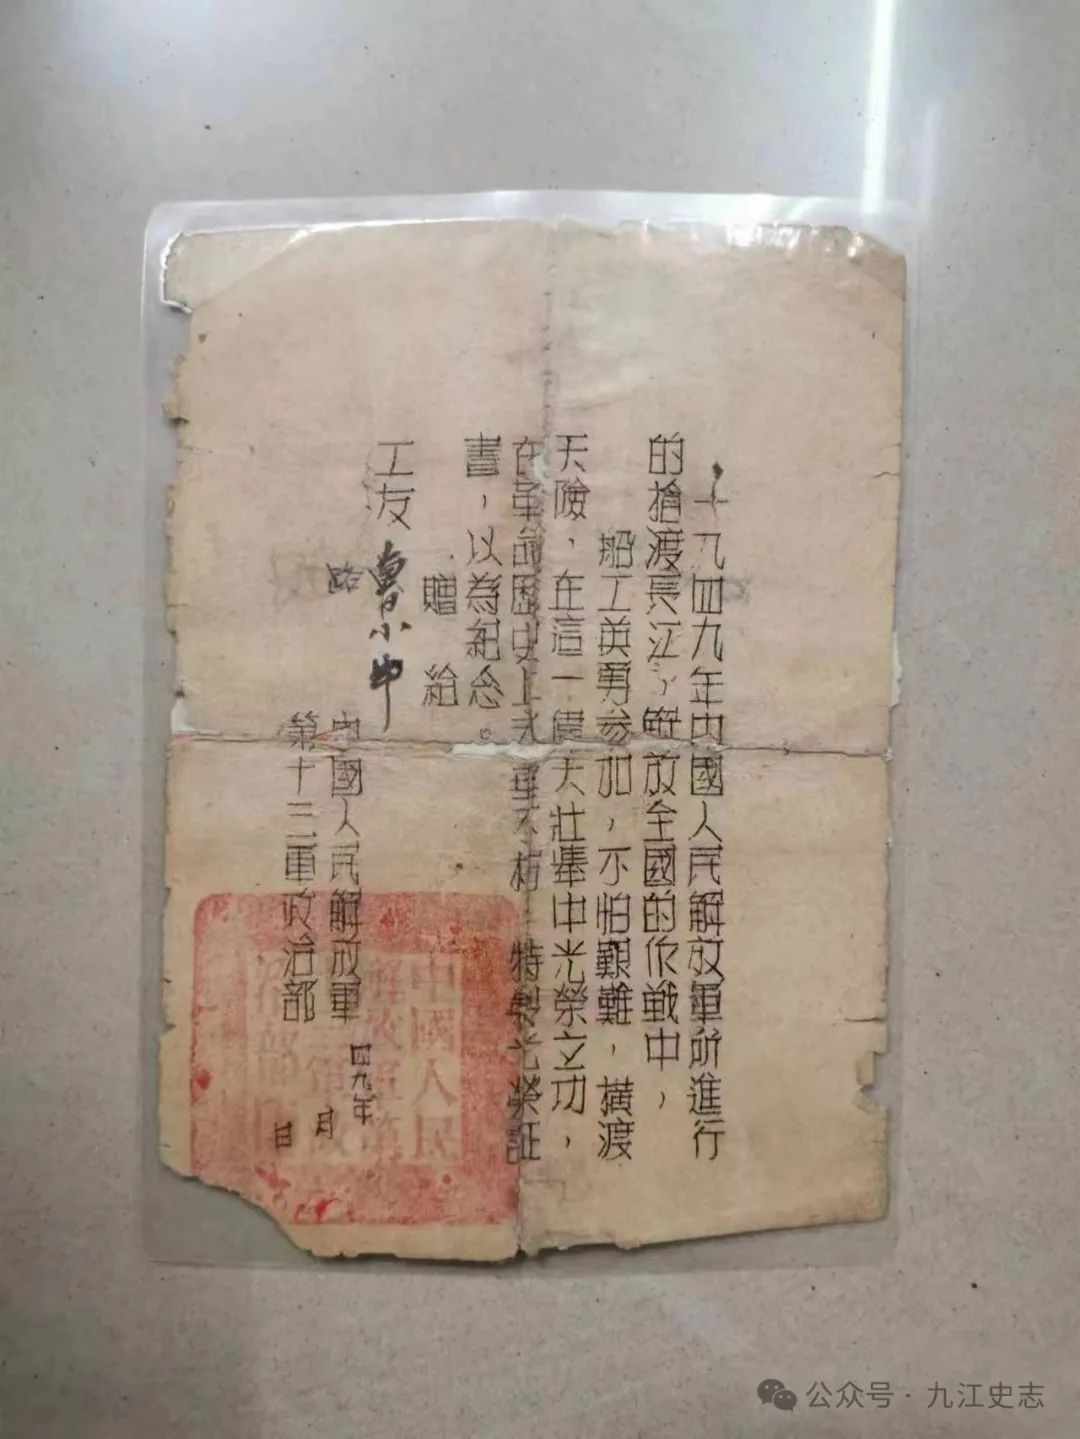 一九四九年中國人民解放軍所進行
的搶渡長江，解放全國的作戰中，
船工英勇參加，不怕艱難，橫渡
天險，在這一偉大壯舉中光榮立功，
在革命歷史上永垂不朽 特製光榮証
書，以為紀念。
贈給
工友 曹小中
中國人民解放軍
第十三軍政治部
四九年
月
日
中國人民
解放軍第
公众号·九江史志